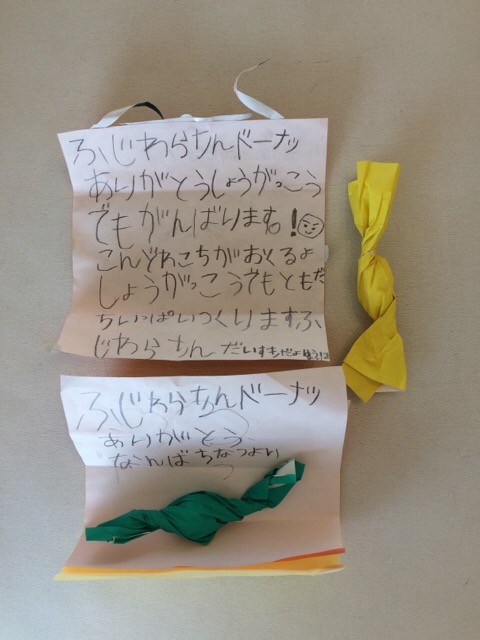 ふじわらちんドーナツ
ありがとうしょうがっこう
でもがんばります!
こんどわこちがおくるよ
しょうがっこうでもともだ
ちいっぱいつくりますふ
じわらちん だいすきだよ
ふじわらちんドーナツ
ありがとう
なんばちなつより